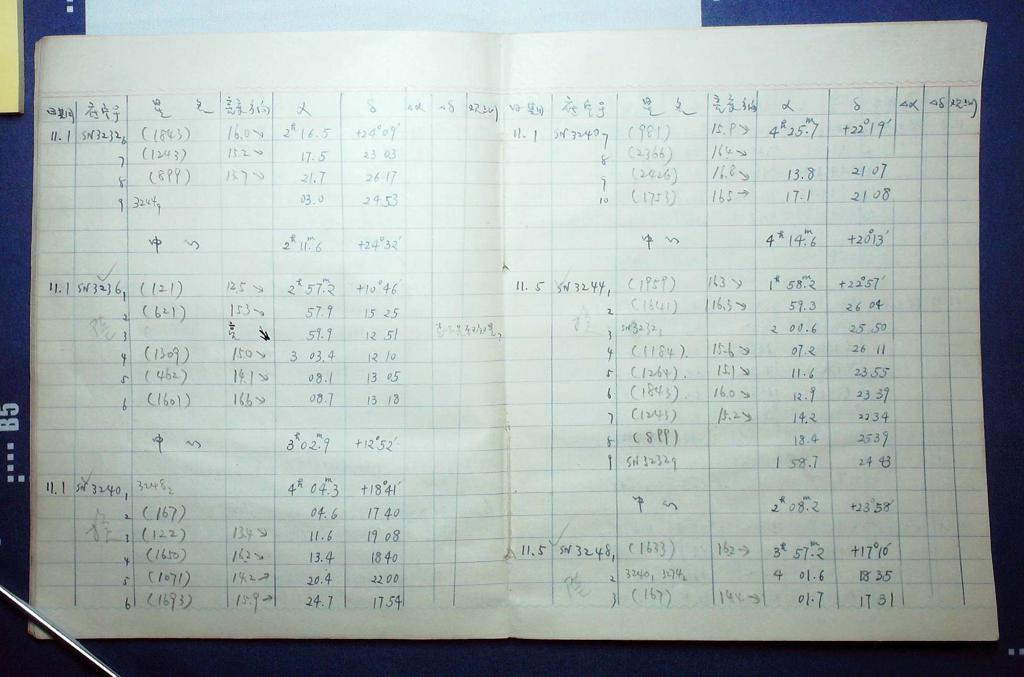 日期 底片号 星名 亮度方向 α δ Δα Δδ
11.1 SN3232₆ (1843) 16.0↘ 2ʰ16.5 +24°09′
7 (1243) 15.2↘ 17.5 23 03
8 (899) 15.7↘ 21.7 26 17
9 3244₉ 03.0 24 53
中心 2ʰ11ᵐ.6 +24°32′
11.1 SN3236₁ (121) 12.5↘ 2ʰ57ᵐ.2 +10°46′
2 (621) 15.3↘ 57.9 15 25
3 亮 ↘ 59.9 12 51
4 (1309) 15.0↘ 3 03.4 12 10
5 (462) 14.1↘ 08.1 13 05
6 (1601) 16.6↘ 08.7 13 18
中心 3ʰ02ᵐ.9 +12°52′
11.1 SN3240₁ 3248₂ 4ʰ04ᵐ.3 +18°41′
2 (167) 04.6 17 40
3 (122) 13.4↘ 11.6 19 08
4 (1650) 16.2↘ 13.4 18 40
5 (1071) 14.2→ 20.4 22 00
6 (1693) 15.9→ 24.7 17 54
B5
日期 底片号 星名 亮度方向 α δ Δα Δδ
11.1 SN3240₇ (981) 15.8↘ 4ʰ25ᵐ.7 +22°19′
8 (2366) 16.4↘
9 (2426) 16.8↘ 13.8 21 07
10 (1753) 16.5→ 17.1 21 08
中心 4ʰ14ᵐ.6 +20°13′
11.5 SN3244₁ (1959) 16.3↘ 1ʰ58ᵐ.2 +22°57′
2 (1641) 16.3↘ 59.3 26 04
3 SN3232₁ 2 00.6 25 50
4 (1184) 15.6↘ 07.2 26 11
5 (1264) 15.1↘ 11.6 23 55
6 (1843) 16.0↘ 12.9 23 39
7 (1243) 15.2↘ 14.2 22 34
8 (899) 18.4 25 39
9 SN3232₉ 1 58.7 24 43
中心 2ʰ08ᵐ.2 +23°58′
11.5 SN3248₁ (1633) 16.2→ 3ʰ57ᵐ.2 +17°10′
2 3240₁ 3274₂ 4 01.6 18 35
3 (167) 14.4→ 01.7 17 31